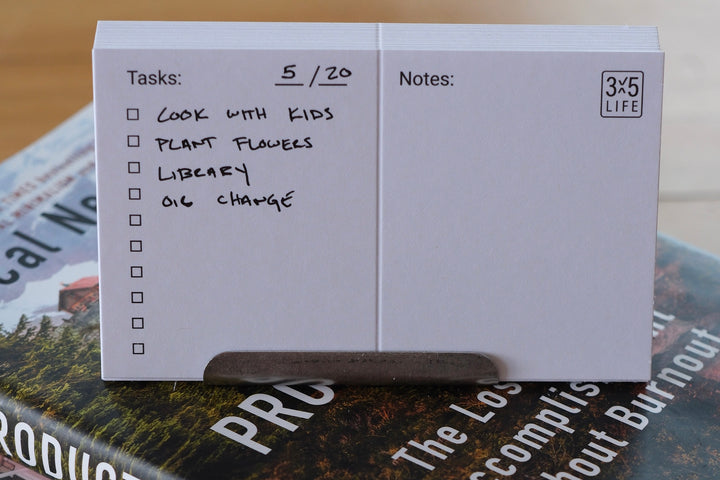 Tasks: 5/20
COOK WITH KIDS
PLANT FLOWERS
LIBRARY
OIL CHANGE
Notes:
3x5
LIFE
cal Ne
PRO
The Los
ccomplis
hout Burnout
RODUCT